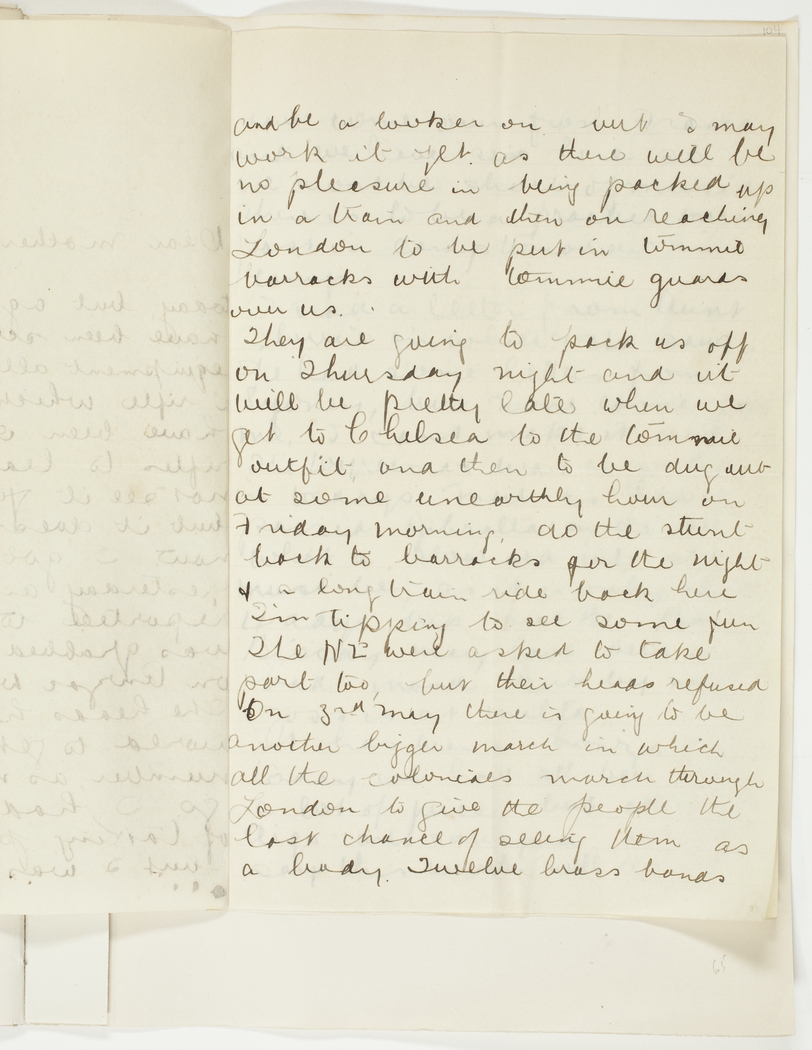 104
and be a looker on but I may
work it yet. as there will be
no pleasure in being packed up
in a train and then on reaching
London to be put in tommie
barracks with tommie guards
over us.
They are going to pack us off
on Thursday night and it
will be pretty late when we
get to Chelsea to the tommie
outfit, and then to be dug out
at some unearthly hour on
Friday morning, do the stunt
back to barracks for the night
& a long train ride back here
I'm tipping to see some fun
The NZ were asked to take
part too, but their heads refused
On 3rd May there is going to be
another bigger march in which
all the colonials march through
London to give the people the
last chance of seeing them as
a body. Twelve brass bands
65